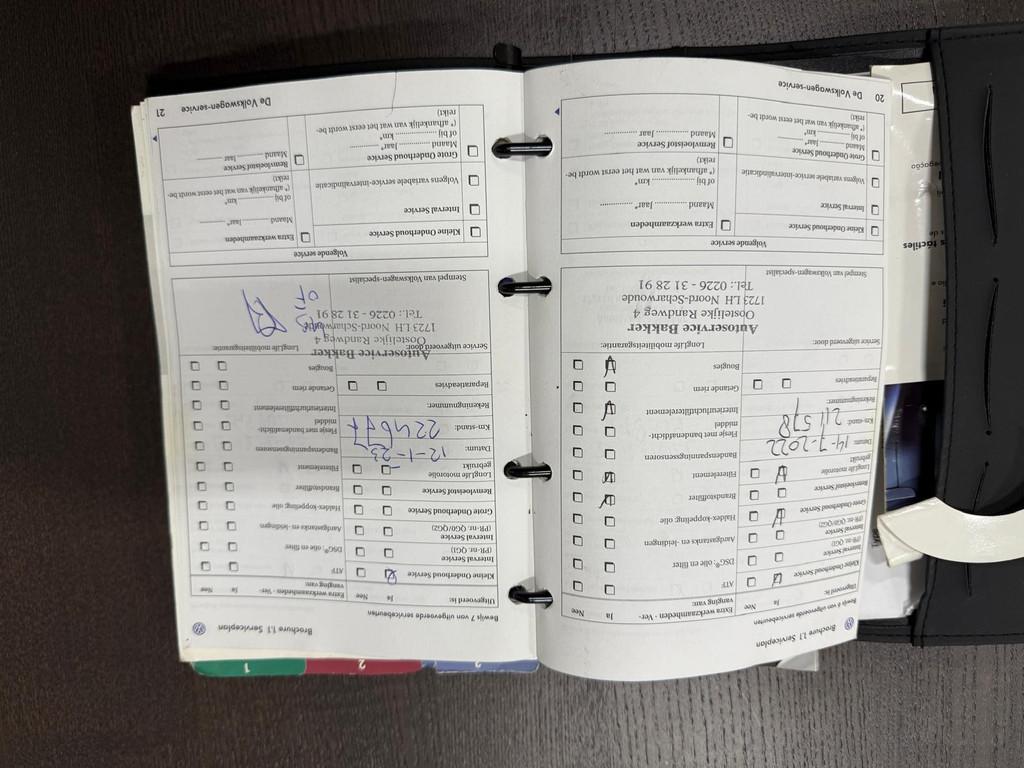 Brochure 1.1 Serviceplan
Bewijs 6 van uitgevoerde servicebeurten
Uitgevoerd is:
Ja
Nee
Kleine Onderhoud Service
Interval Service
(PR-nr. QG1)
Interval Service
(PR-nr. QG0/QG2)
Grote Onderhoud Service
Remvloeistof Service
LongLife motorolie
gebruikt
Datum:
14-7-2022
Km-stand:
211578
Rekeningnummer:
Reparatieadvies
Extra werkzaamheden - Ver-
vanging van:
Ja
Nee
ATF
DSG®, olie en filter
Aardgastanks en -leidingen
Haldex-koppeling: olie
Brandstoffilter
Filterelement
Bandenspanningssensoren
Flesje met bandenafdicht-
middel
Interieurluchtfilterelement
Getande riem
Bougies
Service uitgevoerd door:
LongLife mobiliteitsgarantie:
Autoservice Bakker
Oostelijke Randweg 4
1723 LH Noord-Scharwoude
Tel.: 0226 - 31 28 91
Stempel van Volkswagen-specialist
Volgende service
Kleine Onderhoud Service
Interval Service
Volgens variabele service-intervalindicatie
Grote Onderhoud Service
Maand ............ Jaar* ............
of bij ............ km*
(* afhankelijk van wat het eerst wordt be-
reikt)
Extra werkzaamheden
Maand ............ Jaar* ............
of bij ............ km*
(* afhankelijk van wat het eerst wordt be-
reikt)
Remvloeistof Service
Maand ............ Jaar ............
20 De Volkswagen-service
Brochure 1.1 Serviceplan
Bewijs 7 van uitgevoerde servicebeurten
Uitgevoerd is:
Ja
Nee
Kleine Onderhoud Service
Interval Service
(PR-nr. QG1)
Interval Service
(PR-nr. QG0/QG2)
Grote Onderhoud Service
Remvloeistof Service
LongLife motorolie
gebruikt
Datum:
12-1-23
Km-stand:
224677
Rekeningnummer:
Reparatieadvies
Extra werkzaamheden - Ver-
vanging van:
Ja
Nee
ATF
DSG®, olie en filter
Aardgastanks en -leidingen
Haldex-koppeling: olie
Brandstoffilter
Filterelement
Bandenspanningssensoren
Flesje met bandenafdicht-
middel
Interieurluchtfilterelement
Getande riem
Bougies
Service uitgevoerd door:
LongLife mobiliteitsgarantie:
Autoservice Bakker
Oostelijke Randweg 4
1723 LH Noord-Scharwoude
Tel.: 0226 - 31 28 91
Stempel van Volkswagen-specialist
Volgende service
Kleine Onderhoud Service
Interval Service
Volgens variabele service-intervalindicatie
Grote Onderhoud Service
Maand ............ Jaar* ............
of bij ............ km*
(* afhankelijk van wat het eerst wordt be-
reikt)
Extra werkzaamheden
Maand ............ Jaar* ............
of bij ............ km*
(* afhankelijk van wat het eerst wordt be-
reikt)
Remvloeistof Service
Maand ............ Jaar ............
De Volkswagen-service 21
1
2
3